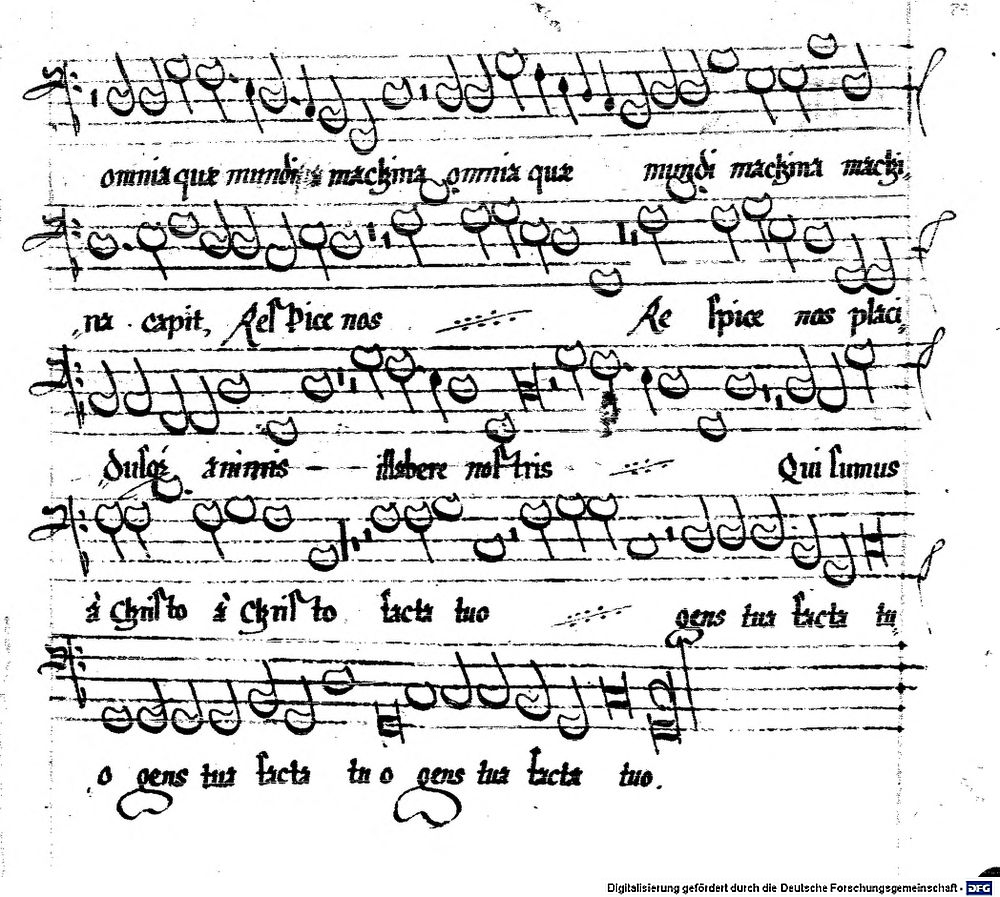 omnia quæ mundi machina omnia quæ mundi machina machi,
,na capit, Respice nos Re spice nos placi,
dusq́ animis illabere nostris Qui sumus
à Christo à Christo facta tuo gens tua facta tu
o gens tua facta tu o gens tua facta tuo.
Digitalisierung gefördert durch die Deutsche Forschungsgemeinschaft - DFG